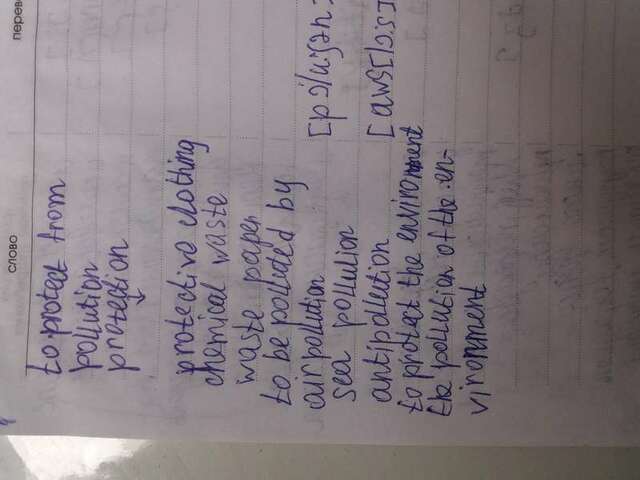 слово
to protect from
pollution
protection
protective clothing
chemical waste
waste paper
to be polluted by
air pollution
sea pollution
antipollution
to protect the environment
the pollution of the en-
vironment